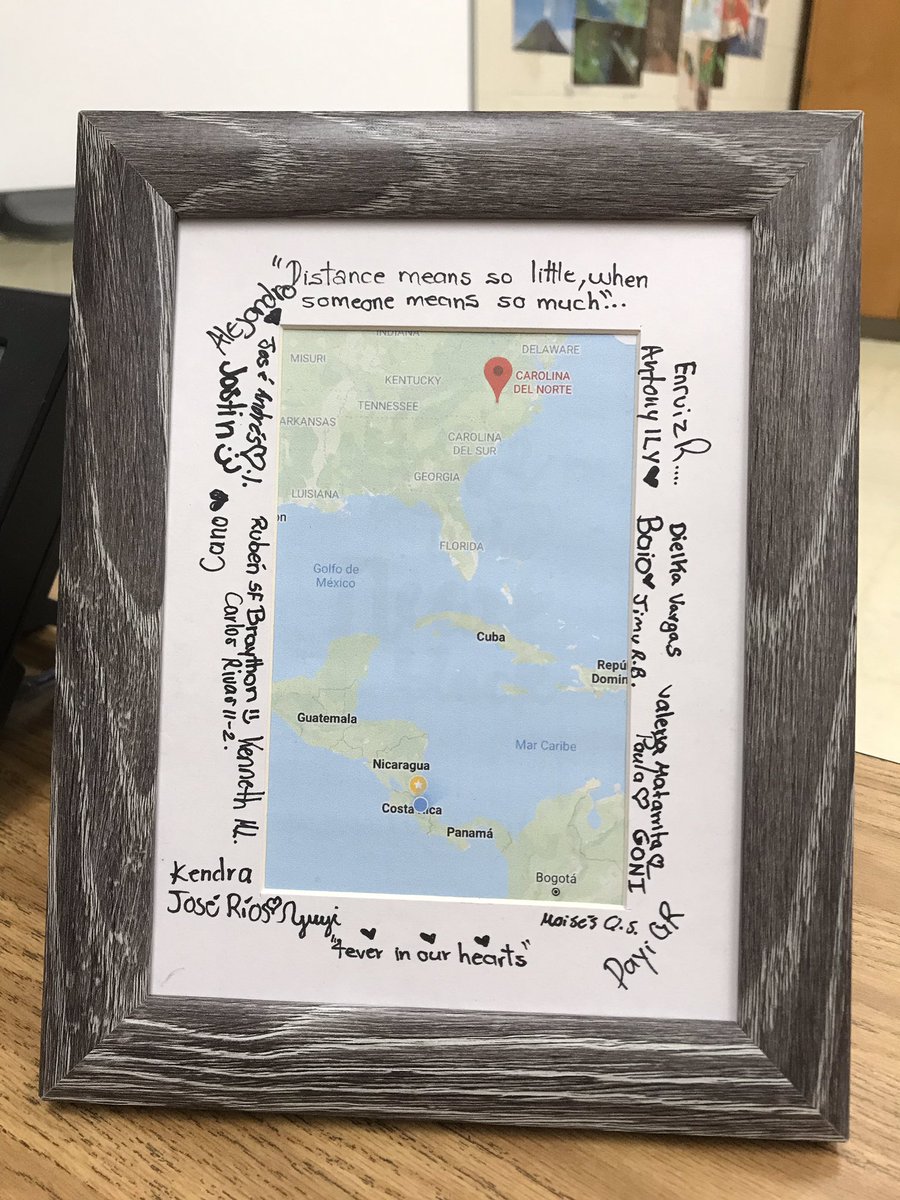 "Distance means so little, when
someone means so much"...
Alejandro
José Andrés :).
Jostin :)
Cano
Rubén SF Braython !! Kenneth M.
Carlos Rivas 11-2.
Kendra
José Ríos Yuyi
"4ever in our hearts"
Moisés Q.S.
Dayi
Enruiz R....
Antony ILY
Dielka Vargas
Baio Jimu R.B.
Valeria Matarrita
Paula GONI
INDIANA
MISURI
DELAWARE
KENTUCKY
CAROLINA
DEL NORTE
TENNESSEE
ARKANSAS
CAROLINA
DEL SUR
GEORGIA
LUISIANA
on
FLORIDA
Golfo de
México
Cuba
Repú
Domin
Guatemala
Mar Caribe
Nicaragua
Costa ica
Panamá
Bogotá